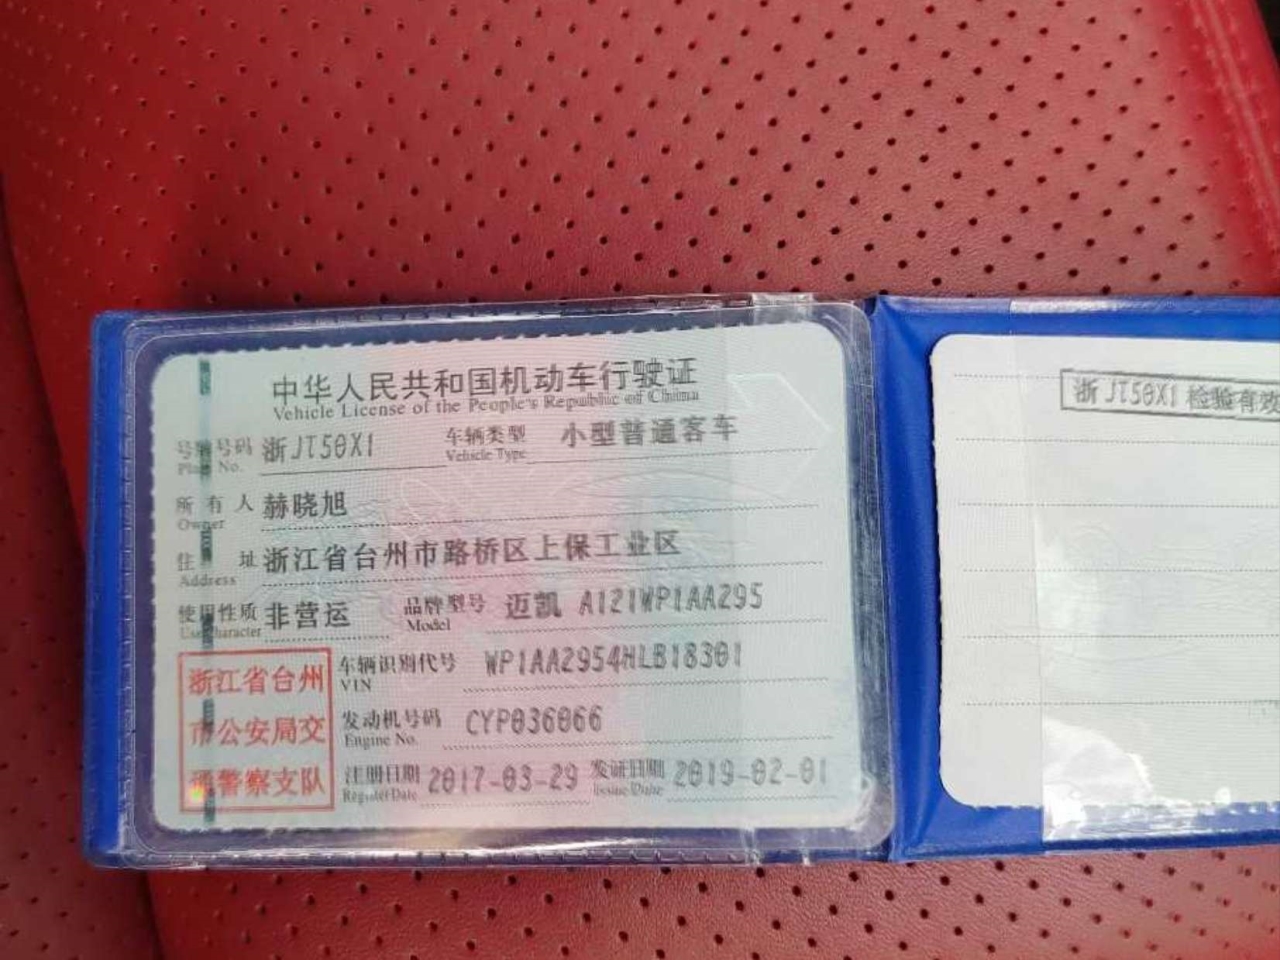 中华人民共和国机动车行驶证
Vehicle License of the People's Republic of China
号牌号码 浙JT50X1 车辆类型 小型普通客车
Plate No. Vehicle Type
所有人 赫晓旭
Owner
住址 浙江省台州市路桥区上保工业区
Address
使用性质 非营运 品牌型号 迈凯 A121WP1AA295
Use Character Model
浙江省台州
市公安局交
通警察支队
车辆识别代号 WP1AA2954HLB18301
VIN
发动机号码 CYP036066
Engine No.
注册日期 2017-03-29 发证日期 2019-02-01
Register Date Issue Date
浙JT50X1 检验有效